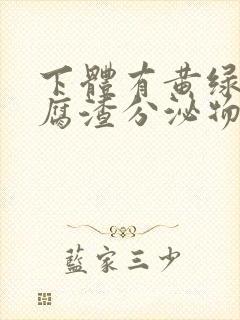 下體有黄绿
腐渣分泌物
藍家三少